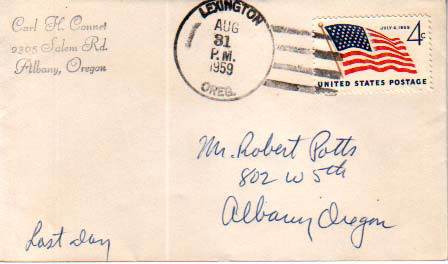 Carl H. Connet
2305 Salem Rd.
Albany, Oregon
LEXINGTON
AUG
31
P.M.
1959
OREG.
JULY 4, 1959
4c
UNITED STATES POSTAGE
Mr. Robert Potts
802 W 5th
Albany Oregon
Last day